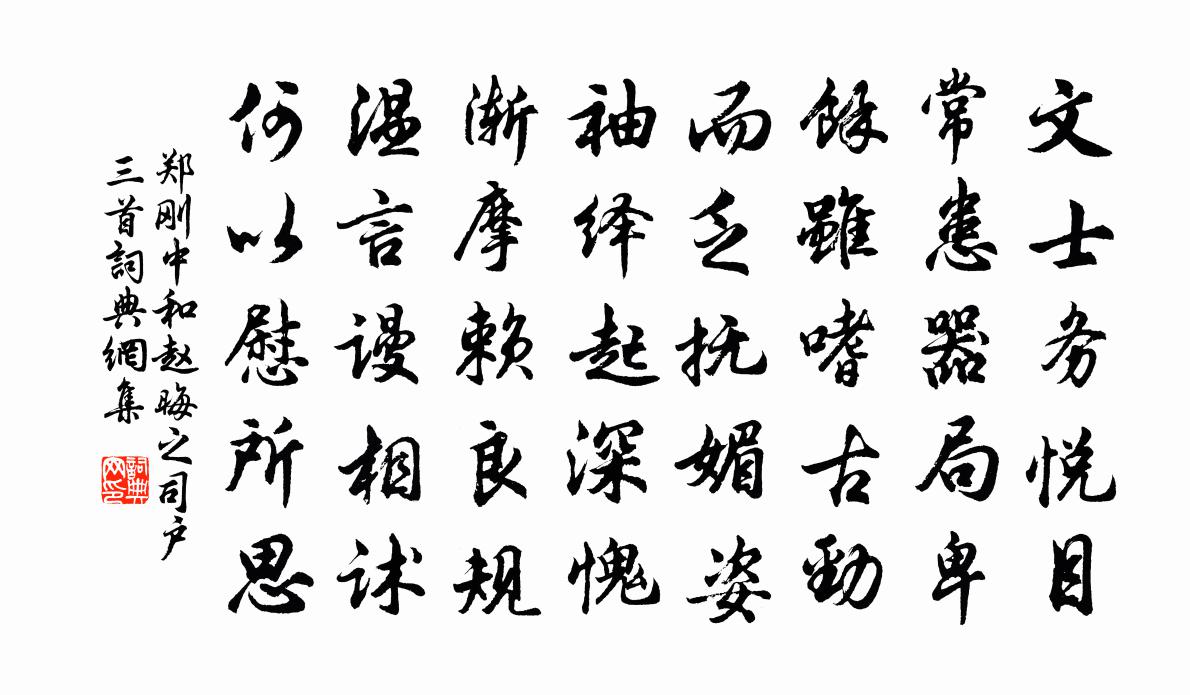 文士务悦目
常患器局卑
馀雖嗜古勁
而乏抚媚姿
袖绎起深愧
渐摩赖良规
温言谩相訹
何以慰所思
郑刚中和赵晦之司户
三首詞典網集
詞典